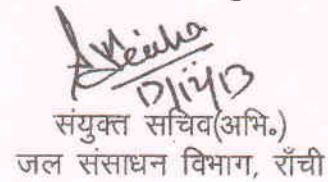 17/12/13
संयुक्त सचिव(अभि०)
जल संसाधन विभाग, राँची